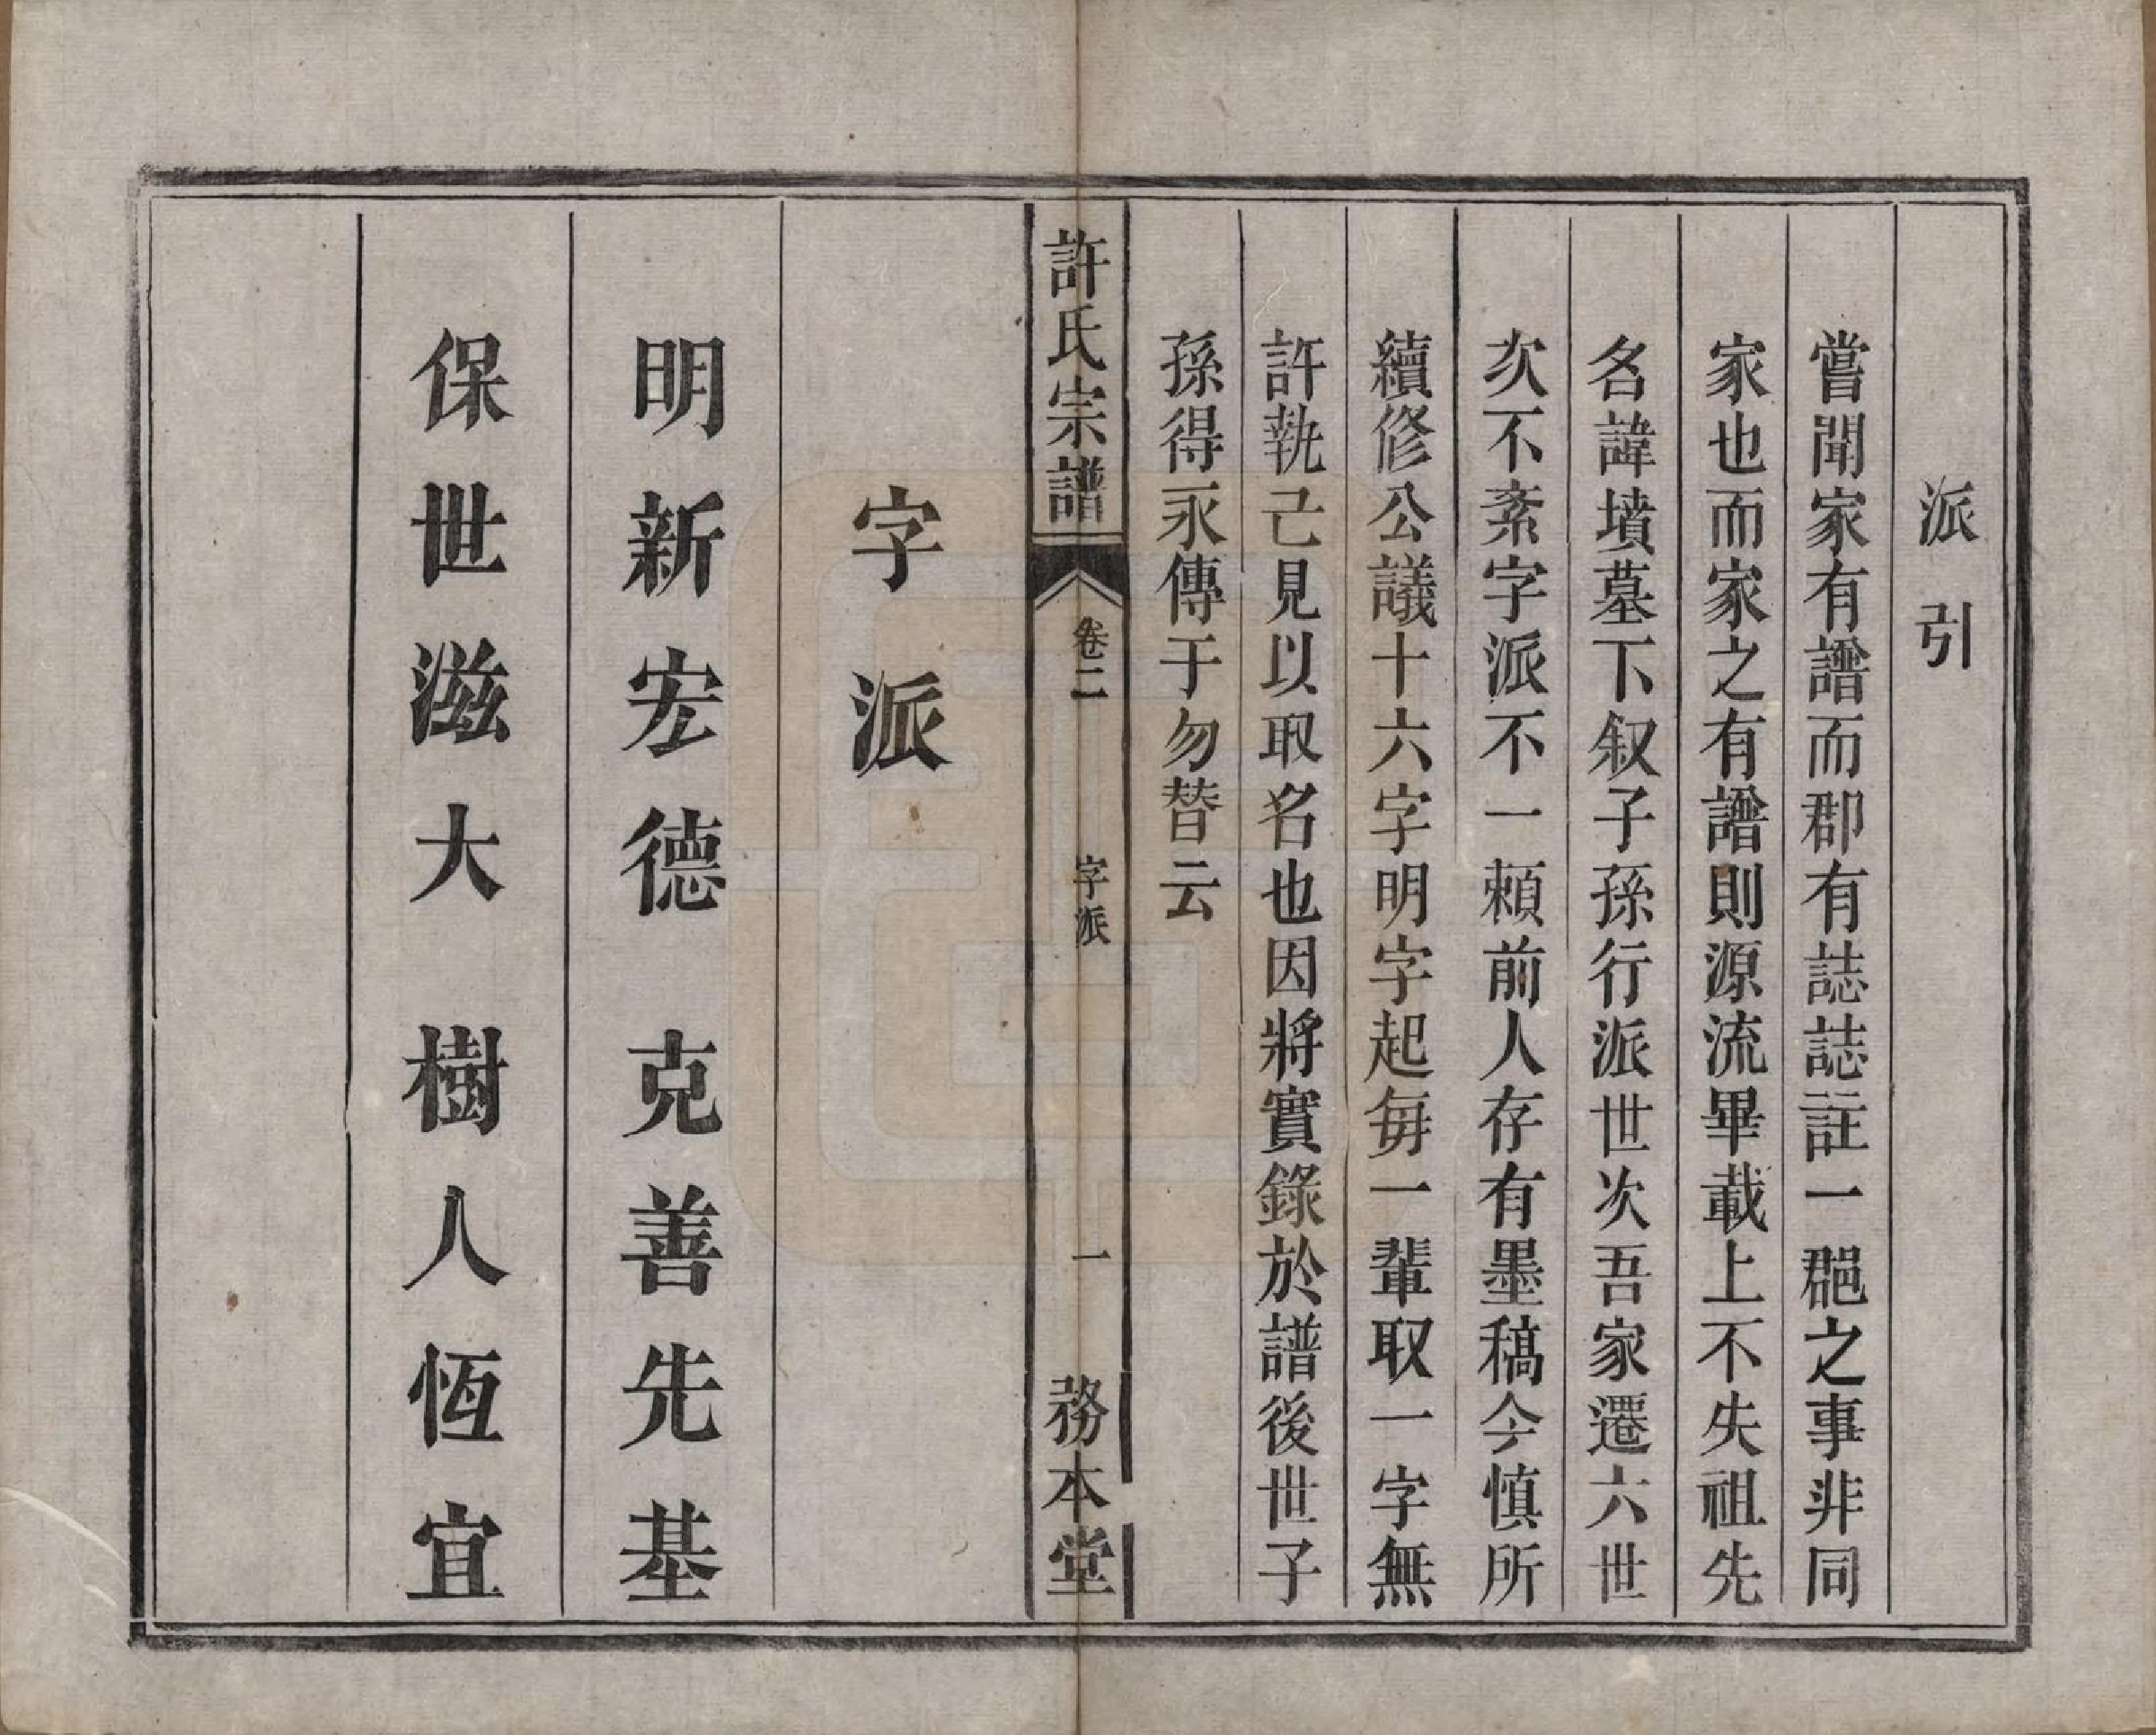 派引
嘗聞家有譜而郡有誌誌註一郡之事非同
家也而家之有譜則源流畢載上不失祖先
名諱墳墓下叙子孫行派世次吾家遷六世
次不紊字派不一頼前人存有墨稿今慎所
續修公議十六字明字起每一輩取一字無
許執己見以取名也因將實錄於譜後世子
孫得永傳于勿替云
許氏宗譜
卷二
字派
一
務本堂
字派
明新宏德 克善先基
保世滋大 樹人恆宜